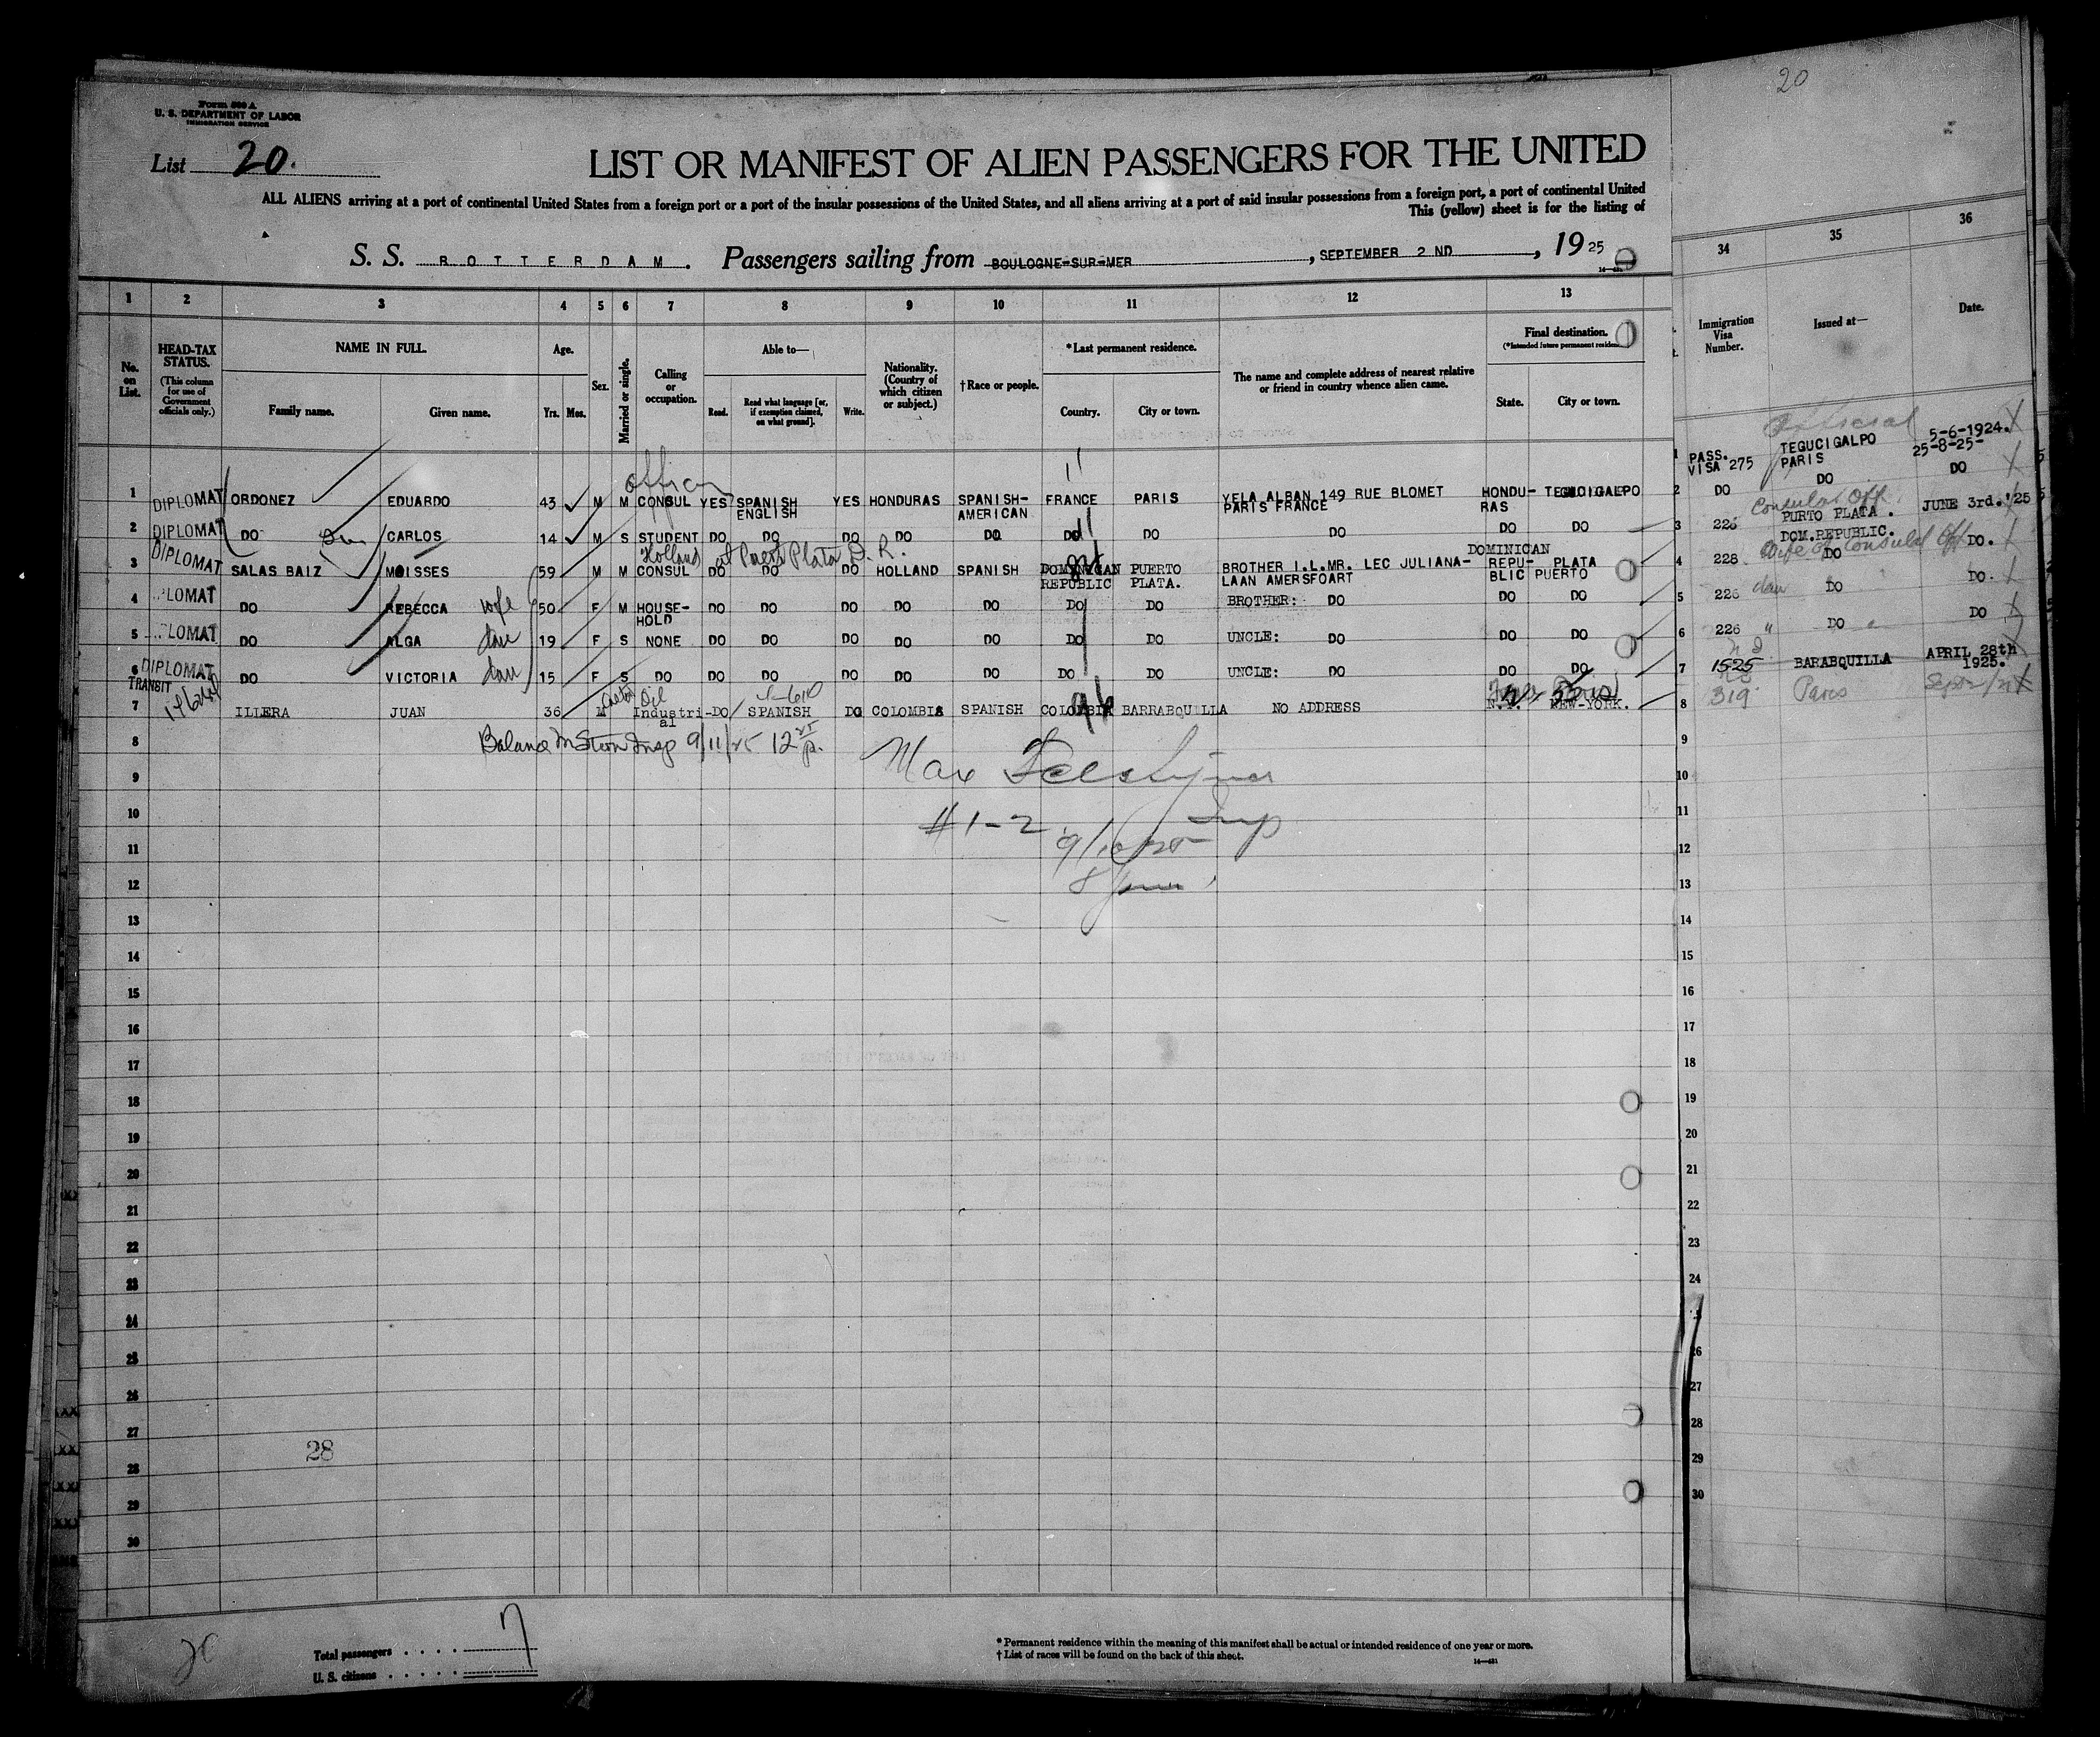 20
Form 500 A
U. S. DEPARTMENT OF LABOR
IMMIGRATION SERVICE
List 20.
LIST OR MANIFEST OF ALIEN PASSENGERS FOR THE UNITED
ALL ALIENS arriving at a port of continental United States from a foreign port or a port of the insular possessions of the United States, and all aliens arriving at a port of said insular possessions from a foreign port, a port of continental United
This (yellow) sheet is for the listing of
S. S. ROTTERDAM. Passengers sailing from BOULOGNE-SUR-MER, SEPTEMBER 2 ND, 1925
1 2 3 4 5 6 7 8 9 10 11 12 13 34 35 36
No. on List.
HEAD-TAX STATUS.
(This column for use of Government officials only.)
NAME IN FULL.
Family name. Given name.
Age.
Yrs. Mos.
Sex.
Married or single.
Calling or occupation.
Able to—
Read. Read what language [or, if exemption claimed, on what ground]. Write.
Nationality. (Country of which citizen or subject.)
†Race or people.
*Last permanent residence.
Country. City or town.
The name and complete address of nearest relative or friend in country whence alien came.
Final destination.
(*Intended future permanent residence
State. City or town.
Immigration Visa Number.
Issued at—
Date.
1 DIPLOMAT ORDONEZ EDUARDO 43 M M CONSUL YES SPANISH ENGLISH YES HONDURAS SPANISH-AMERICAN FRANCE PARIS YELA ALBAN 149 RUE BLOMET PARIS FRANCE HONDU-RAS TEGUCIGALPO
1 PASS. VISA 275 TEGUCIGALPO PARIS 5-6-1924. 25-8-25-
2 DIPLOMAT DO CARLOS 14 M S STUDENT DO DO DO DO DO DO DO DO DO DO
2 DO DO DO
Holland at Puerto Plata D. R.
3 DIPLOMAT SALAS BAIZ MOISSES 59 M M CONSUL DO DO DO HOLLAND SPANISH DOMINICAN REPUBLIC PUERTO PLATA. BROTHER I.L.MR. LEC JULIANA-LAAN AMERSFOART DOMINICAN REPU-BLIC PUERTO PLATA
Consular Off
3 226 PURTO PLATA. DOM.REPUBLIC. JUNE 3rd.'25
4 PLOMAT DO REBECCA wife 50 F M HOUSE-HOLD DO DO DO DO DO DO DO BROTHER: DO DO DO
Wife of Consular Off
4 228 DO DO.
5 PLOMAT DO ALGA dau 19 F S NONE DO DO DO DO DO DO DO UNCLE: DO DO DO
5 226 dau DO DO.
6 DIPLOMAT DO VICTORIA dau 15 F S DO DO DO DO DO DO DO DO UNCLE: DO DO DO
6 226 " DO DO
7 TRANSIT ILLERA JUAN 36 M Industri-al DO SPANISH DO COLOMBIA SPANISH COLOMBIA BARRABQUILLA NO ADDRESS N.Y. NEW-YORK.
7 1525 BARABQUILLA APRIL 28th 1925.
8 319 Paris
8 9
Max
9 10
#1-2
10 11
11 12
12 13
13 14
14 15
15 16
16 17
17 18
18 19
19 20
20 21
21 22
22 23
23 24
24
25 26
26 27
27 28
28
28 29
29 30
30
20
Total passengers . . . . 7
U. S. citizens . . . . .
* Permanent residence within the meaning of this manifest shall be actual or intended residence of one year or more.
† List of races will be found on the back of this sheet.